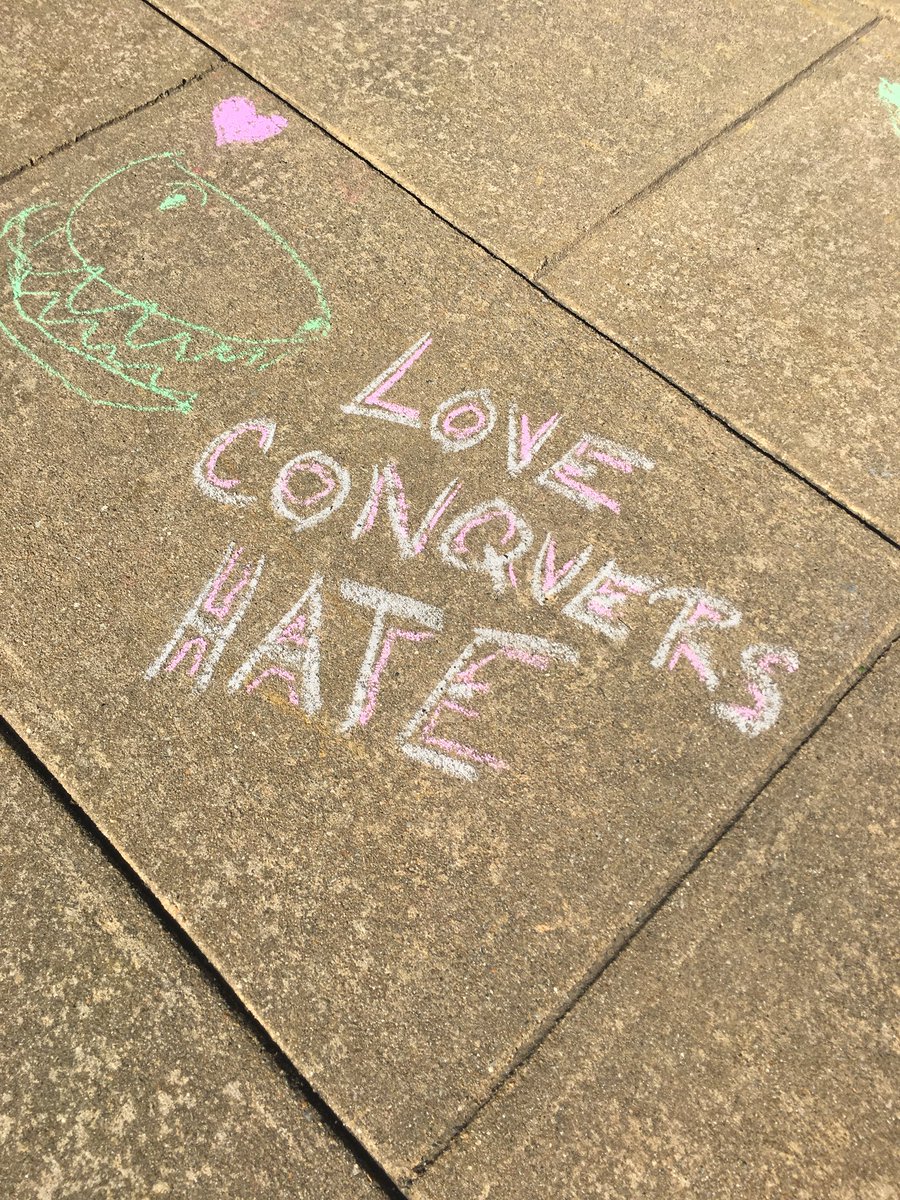 LOVE
CONQVERS
HATE